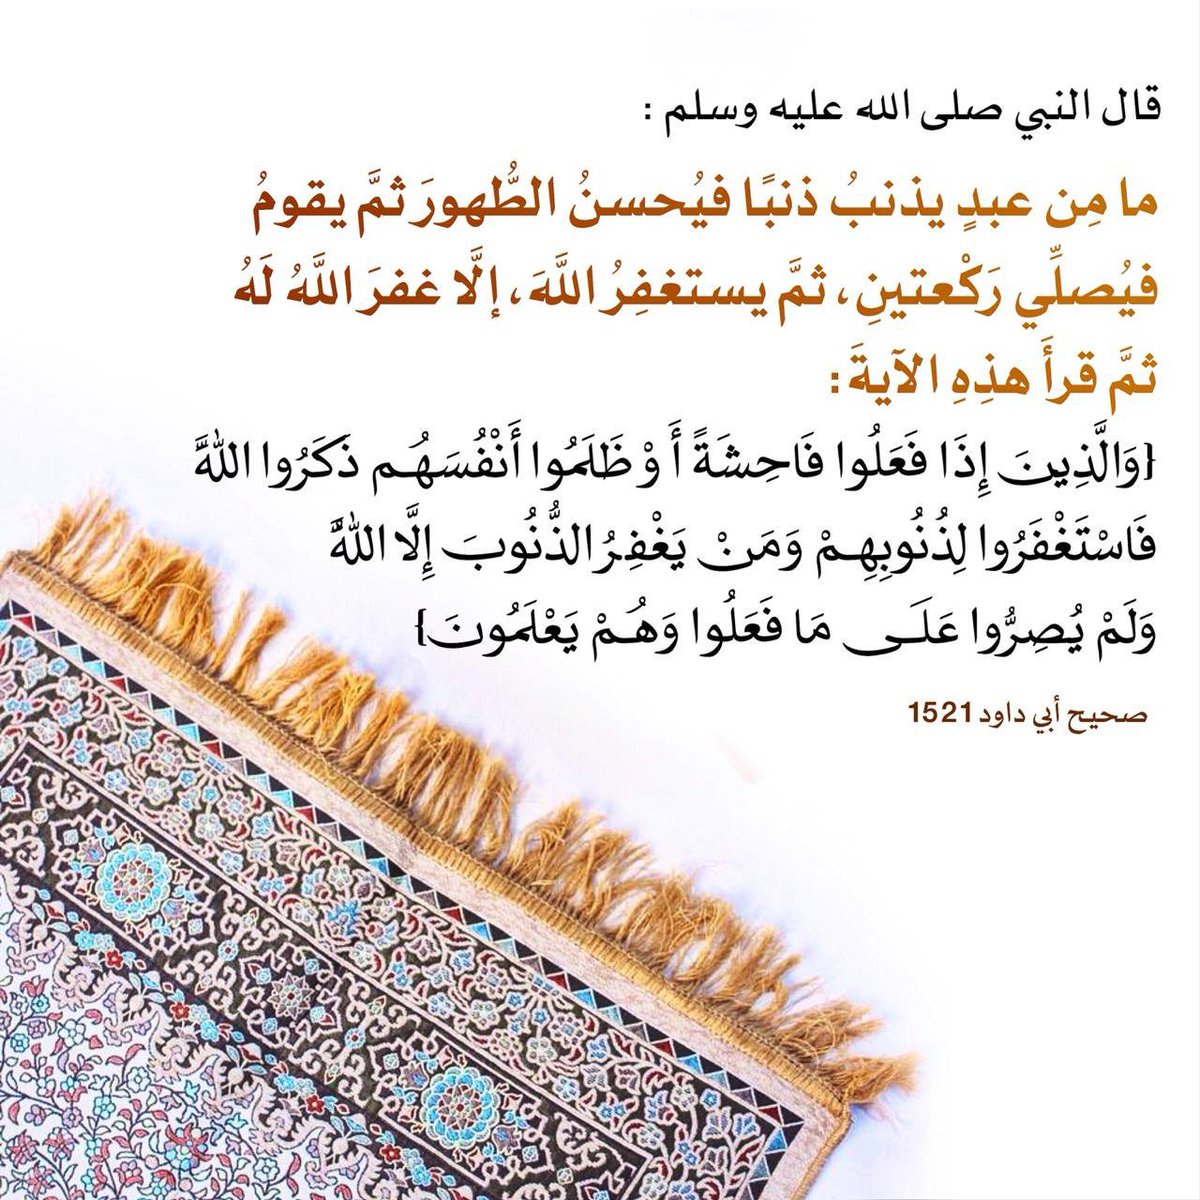 قال النبي صلى الله عليه وسلم :
ما مِن عبدٍ يذنبُ ذنبًا فيُحسنُ الطُّهورَ ثمَّ يقومُ
فيُصلِّي رَكْعتينِ، ثمَّ يستغفِرُ اللَّهَ، إلَّا غفرَ اللَّهُ لَهُ
ثمَّ قرأَ هذِهِ الآيةَ :
{وَالَّذِينَ إِذَا فَعَلُوا فَاحِشَةً أَوْ ظَلَمُوا أَنْفُسَهُم ذَكَرُوا اللَّهَ
فَاسْتَغْفَرُوا لِذُنُوبِهِمْ وَمَنْ يَغْفِرُ الذُّنُوبَ إِلَّا اللَّهُ
وَلَمْ يُصِرُّوا عَلَى مَا فَعَلُوا وَهُمْ يَعْلَمُونَ}
صحيح أبي داود 1521